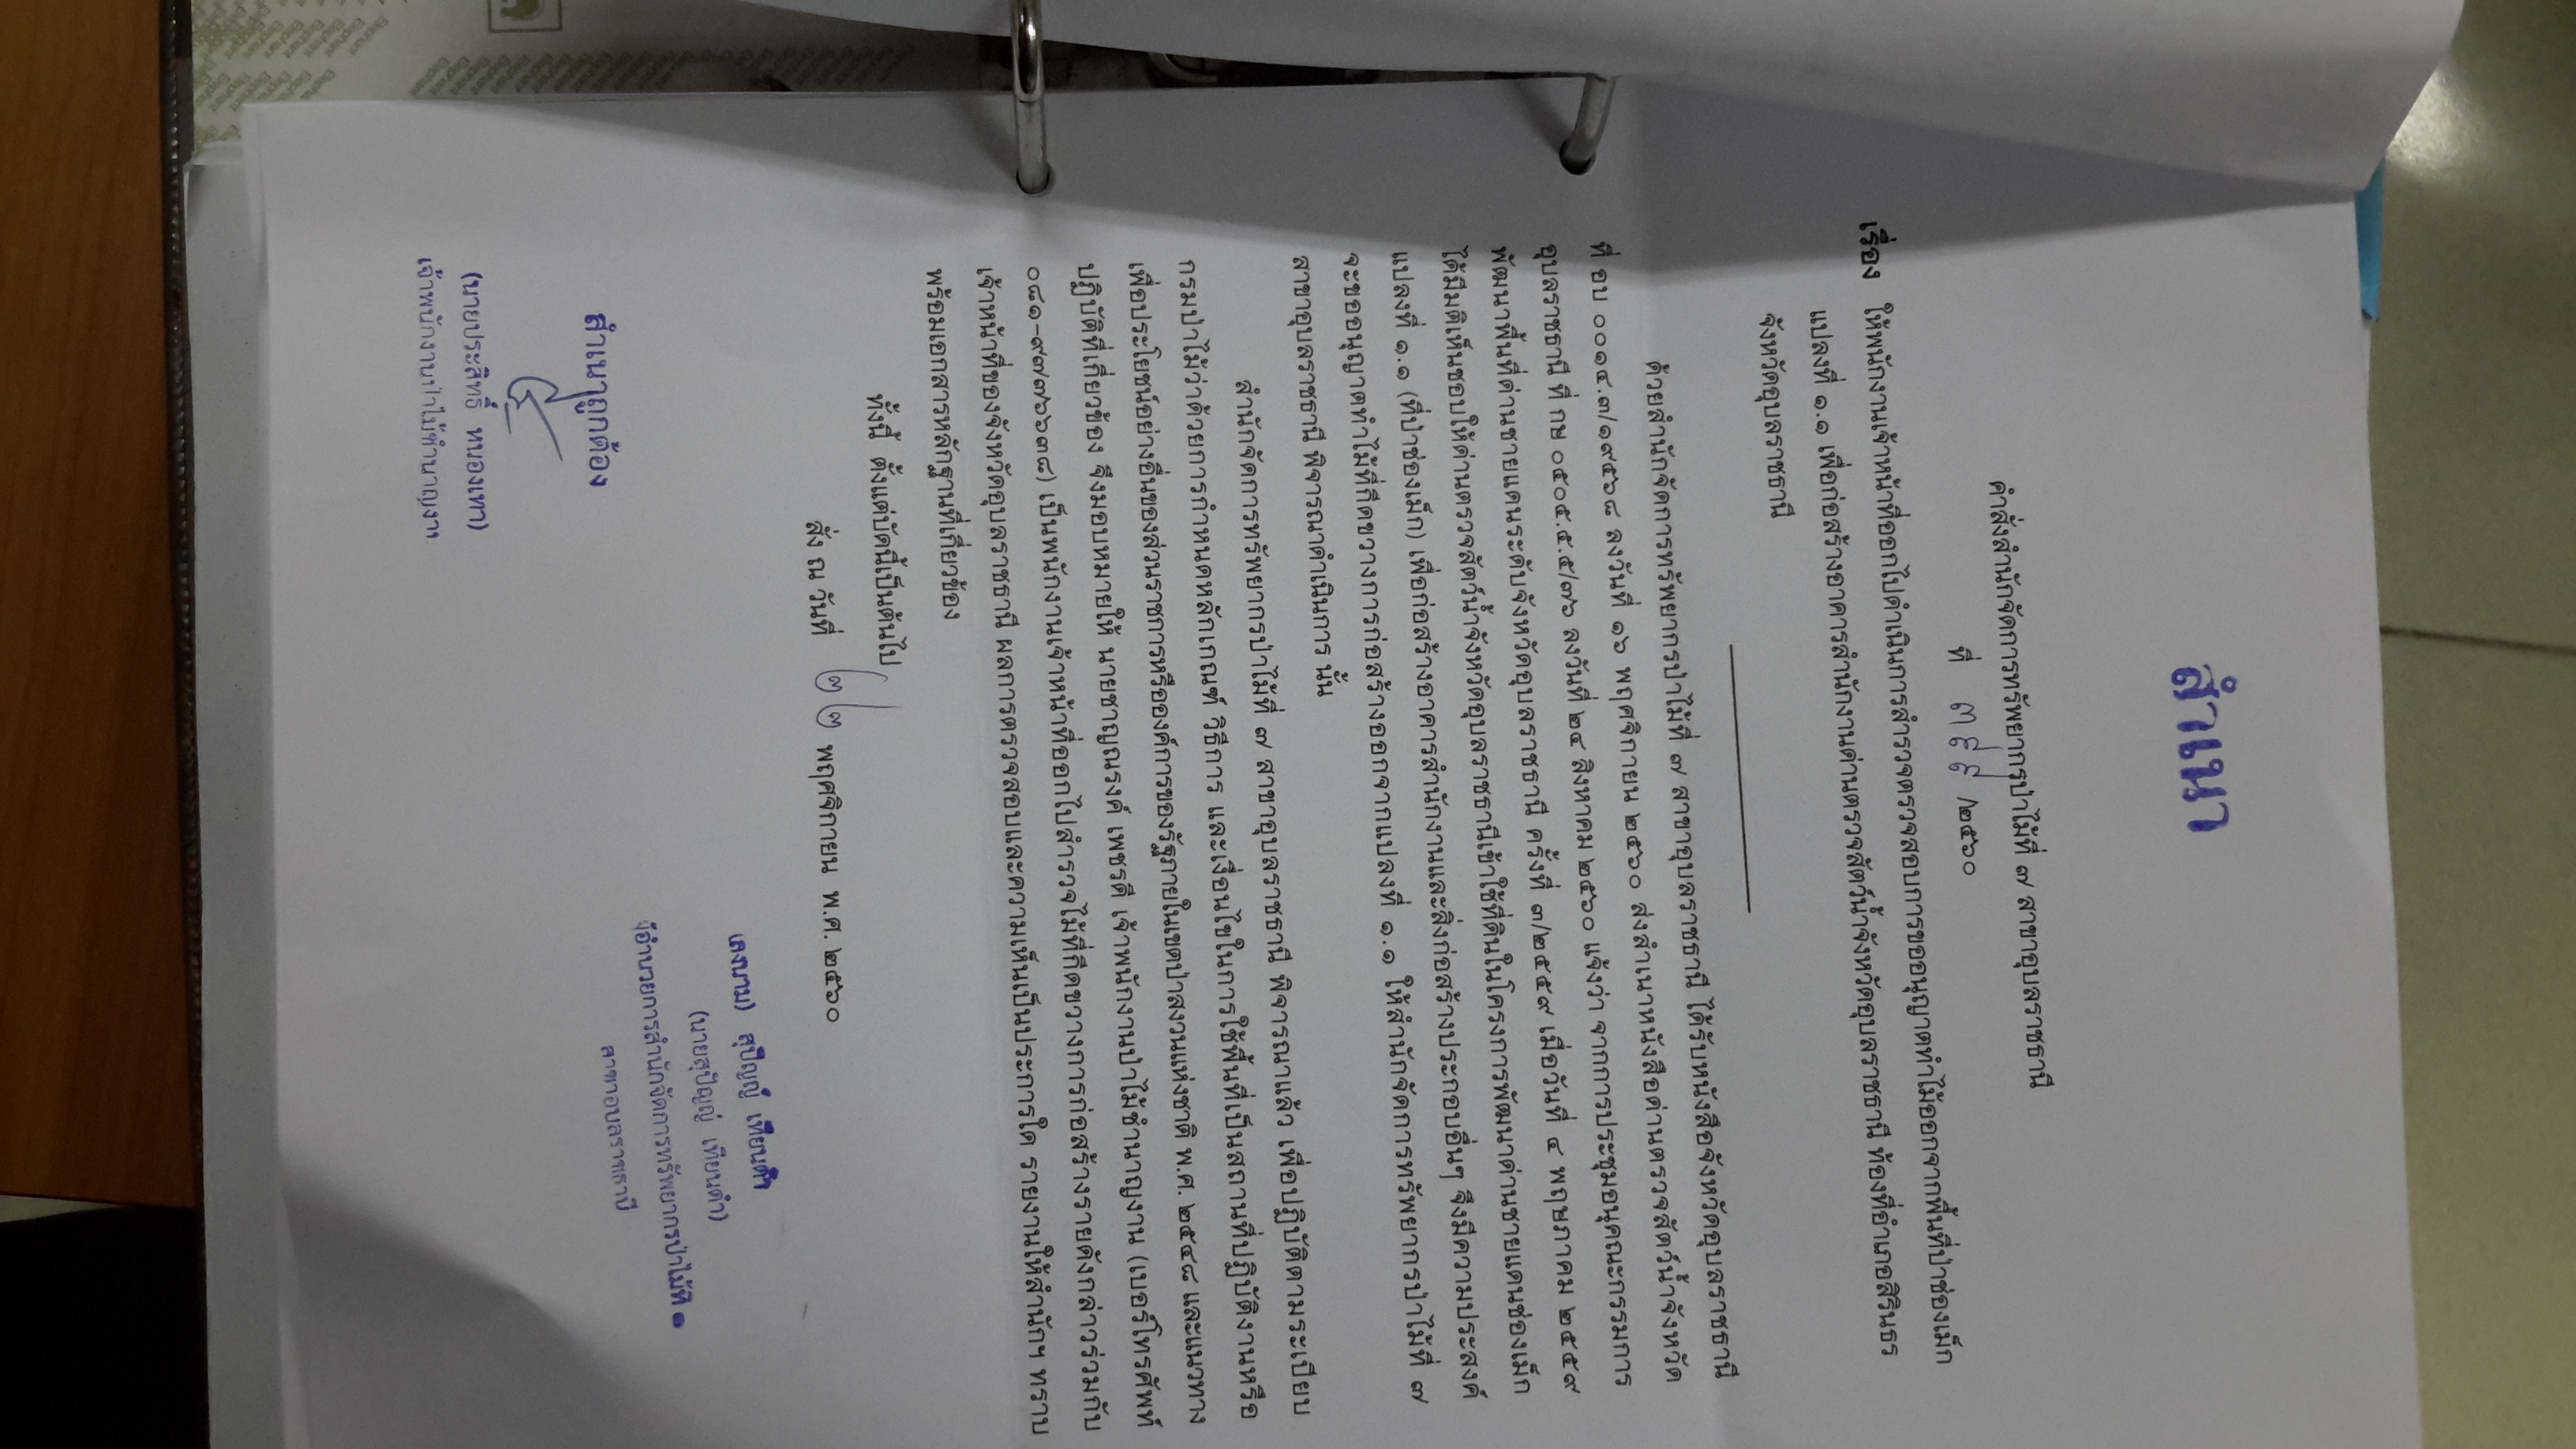 สำเนา
คำสั่งสำนักจัดการทรัพยากรป่าไม้ที่ ๗ สาขาอุบลราชธานี
ที่ ๓๕๕ /๒๕๖๐
เรื่อง ให้พนักงานเจ้าหน้าที่ออกไปดำเนินการสำรวจตรวจสอบการขออนุญาตทำไม้ออกจากพื้นที่ป่าช่องเม็ก
แปลงที่ ๑.๑ เพื่อก่อสร้างอาคารสำนักงานด่านตรวจสัตว์น้ำจังหวัดอุบลราชธานี ท้องที่อำเภอสิรินธร
จังหวัดอุบลราชธานี
ด้วยสำนักจัดการทรัพยากรป่าไม้ที่ ๗ สาขาอุบลราชธานี ได้รับหนังสือจังหวัดอุบลราชธานี
ที่ อบ ๐๐๑๔.๓/๑๙๕๖๘ ลงวันที่ ๑๖ พฤศจิกายน ๒๕๖๐ ส่งสำเนาหนังสือด่านตรวจสัตว์น้ำจังหวัด
อุบลราชธานี ที่ กษ ๐๕๐๕.๕.๕/๗๖ ลงวันที่ ๒๔ สิงหาคม ๒๕๖๐ แจ้งว่า จากการประชุมอนุคณะกรรมการ
พัฒนาพื้นที่ด่านชายแดนระดับจังหวัดอุบลราชธานี ครั้งที่ ๓/๒๕๕๙ เมื่อวันที่ ๔ พฤษภาคม ๒๕๕๙
ได้มีมติเห็นชอบให้ด่านตรวจสัตว์น้ำจังหวัดอุบลราชธานีเข้าใช้ที่ดินในโครงการพัฒนาด่านชายแดนช่องเม็ก
แปลงที่ ๑.๑ (ที่ป่าช่องเม็ก) เพื่อก่อสร้างอาคารสำนักงานและสิ่งก่อสร้างประกอบอื่นๆ จึงมีความประสงค์
จะขออนุญาตทำไม้ที่กีดขวางการก่อสร้างออกจากแปลงที่ ๑.๑ ให้สำนักจัดการทรัพยากรป่าไม้ที่ ๗
สาขาอุบลราชธานี พิจารณาดำเนินการ นั้น
สำนักจัดการทรัพยากรป่าไม้ที่ ๗ สาขาอุบลราชธานี พิจารณาแล้ว เพื่อปฏิบัติตามระเบียบ
กรมป่าไม้ว่าด้วยการกำหนดหลักเกณฑ์ วิธีการ และเงื่อนไขในการใช้พื้นที่เป็นสถานที่ปฏิบัติงานหรือ
เพื่อประโยชน์อย่างอื่นของส่วนราชการหรือองค์การของรัฐภายในเขตป่าสงวนแห่งชาติ พ.ศ. ๒๕๔๘ และแนวทาง
ปฏิบัติที่เกี่ยวข้อง จึงมอบหมายให้ นายชาญณรงค์ เพชรดี เจ้าพนักงานป่าไม้ชำนาญงาน (เบอร์โทรศัพท์
๐๘๑-๙๗๗๖๖๓๘) เป็นพนักงานเจ้าหน้าที่ออกไปสำรวจไม้ที่กีดขวางการก่อสร้างรายดังกล่าวร่วมกับ
เจ้าหน้าที่ของจังหวัดอุบลราชธานี ผลการตรวจสอบและความเห็นเป็นประการใด รายงานให้สำนักฯ ทราบ
พร้อมเอกสารหลักฐานที่เกี่ยวข้อง
ทั้งนี้ ตั้งแต่บัดนี้เป็นต้นไป
สั่ง ณ วันที่ ๒๒ พฤศจิกายน พ.ศ. ๒๕๖๐
(ลงนาม) สุปัญญ์ เทียนคำ
(นายสุปัญญ์ เทียนคำ)
ผู้อำนวยการสำนักจัดการทรัพยากรป่าไม้ที่ ๗
สาขาอุบลราชธานี
สำเนาถูกต้อง
(นายประสิทธิ์ หนองเทา)
เจ้าพนักงานป่าไม้ชำนาญงาน